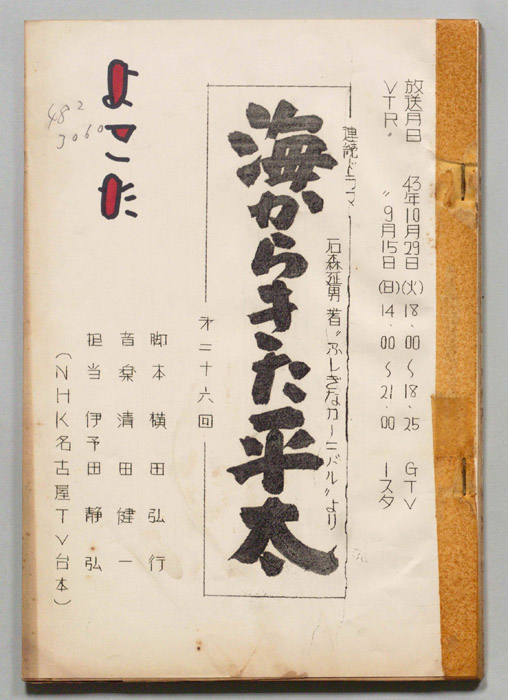 放送月日 43年10月29日(火) 18.00〜18.25 GTV
VTR〃 〃9月15日(日) 14.00〜21.00 1スタ
連続ドラマ
石森延男 著〝ふしぎなカーニバル〟より
海からきた平太
第二十六回
脚本 横田弘行
音楽 清田健一
担当 伊予田静弘
(NHK名古屋TV台本)
482
3060